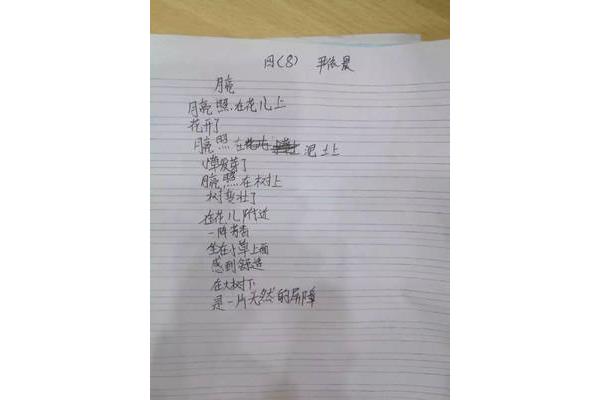 四(8) 尹依晨
月亮
月亮照在花儿上
花开了
月亮照在泥土上
小草发芽了
月亮照在树上
树变壮了
在花儿附近
一阵芳香
坐在小草上面
感到舒适
在大树下
是一片天然的屏障